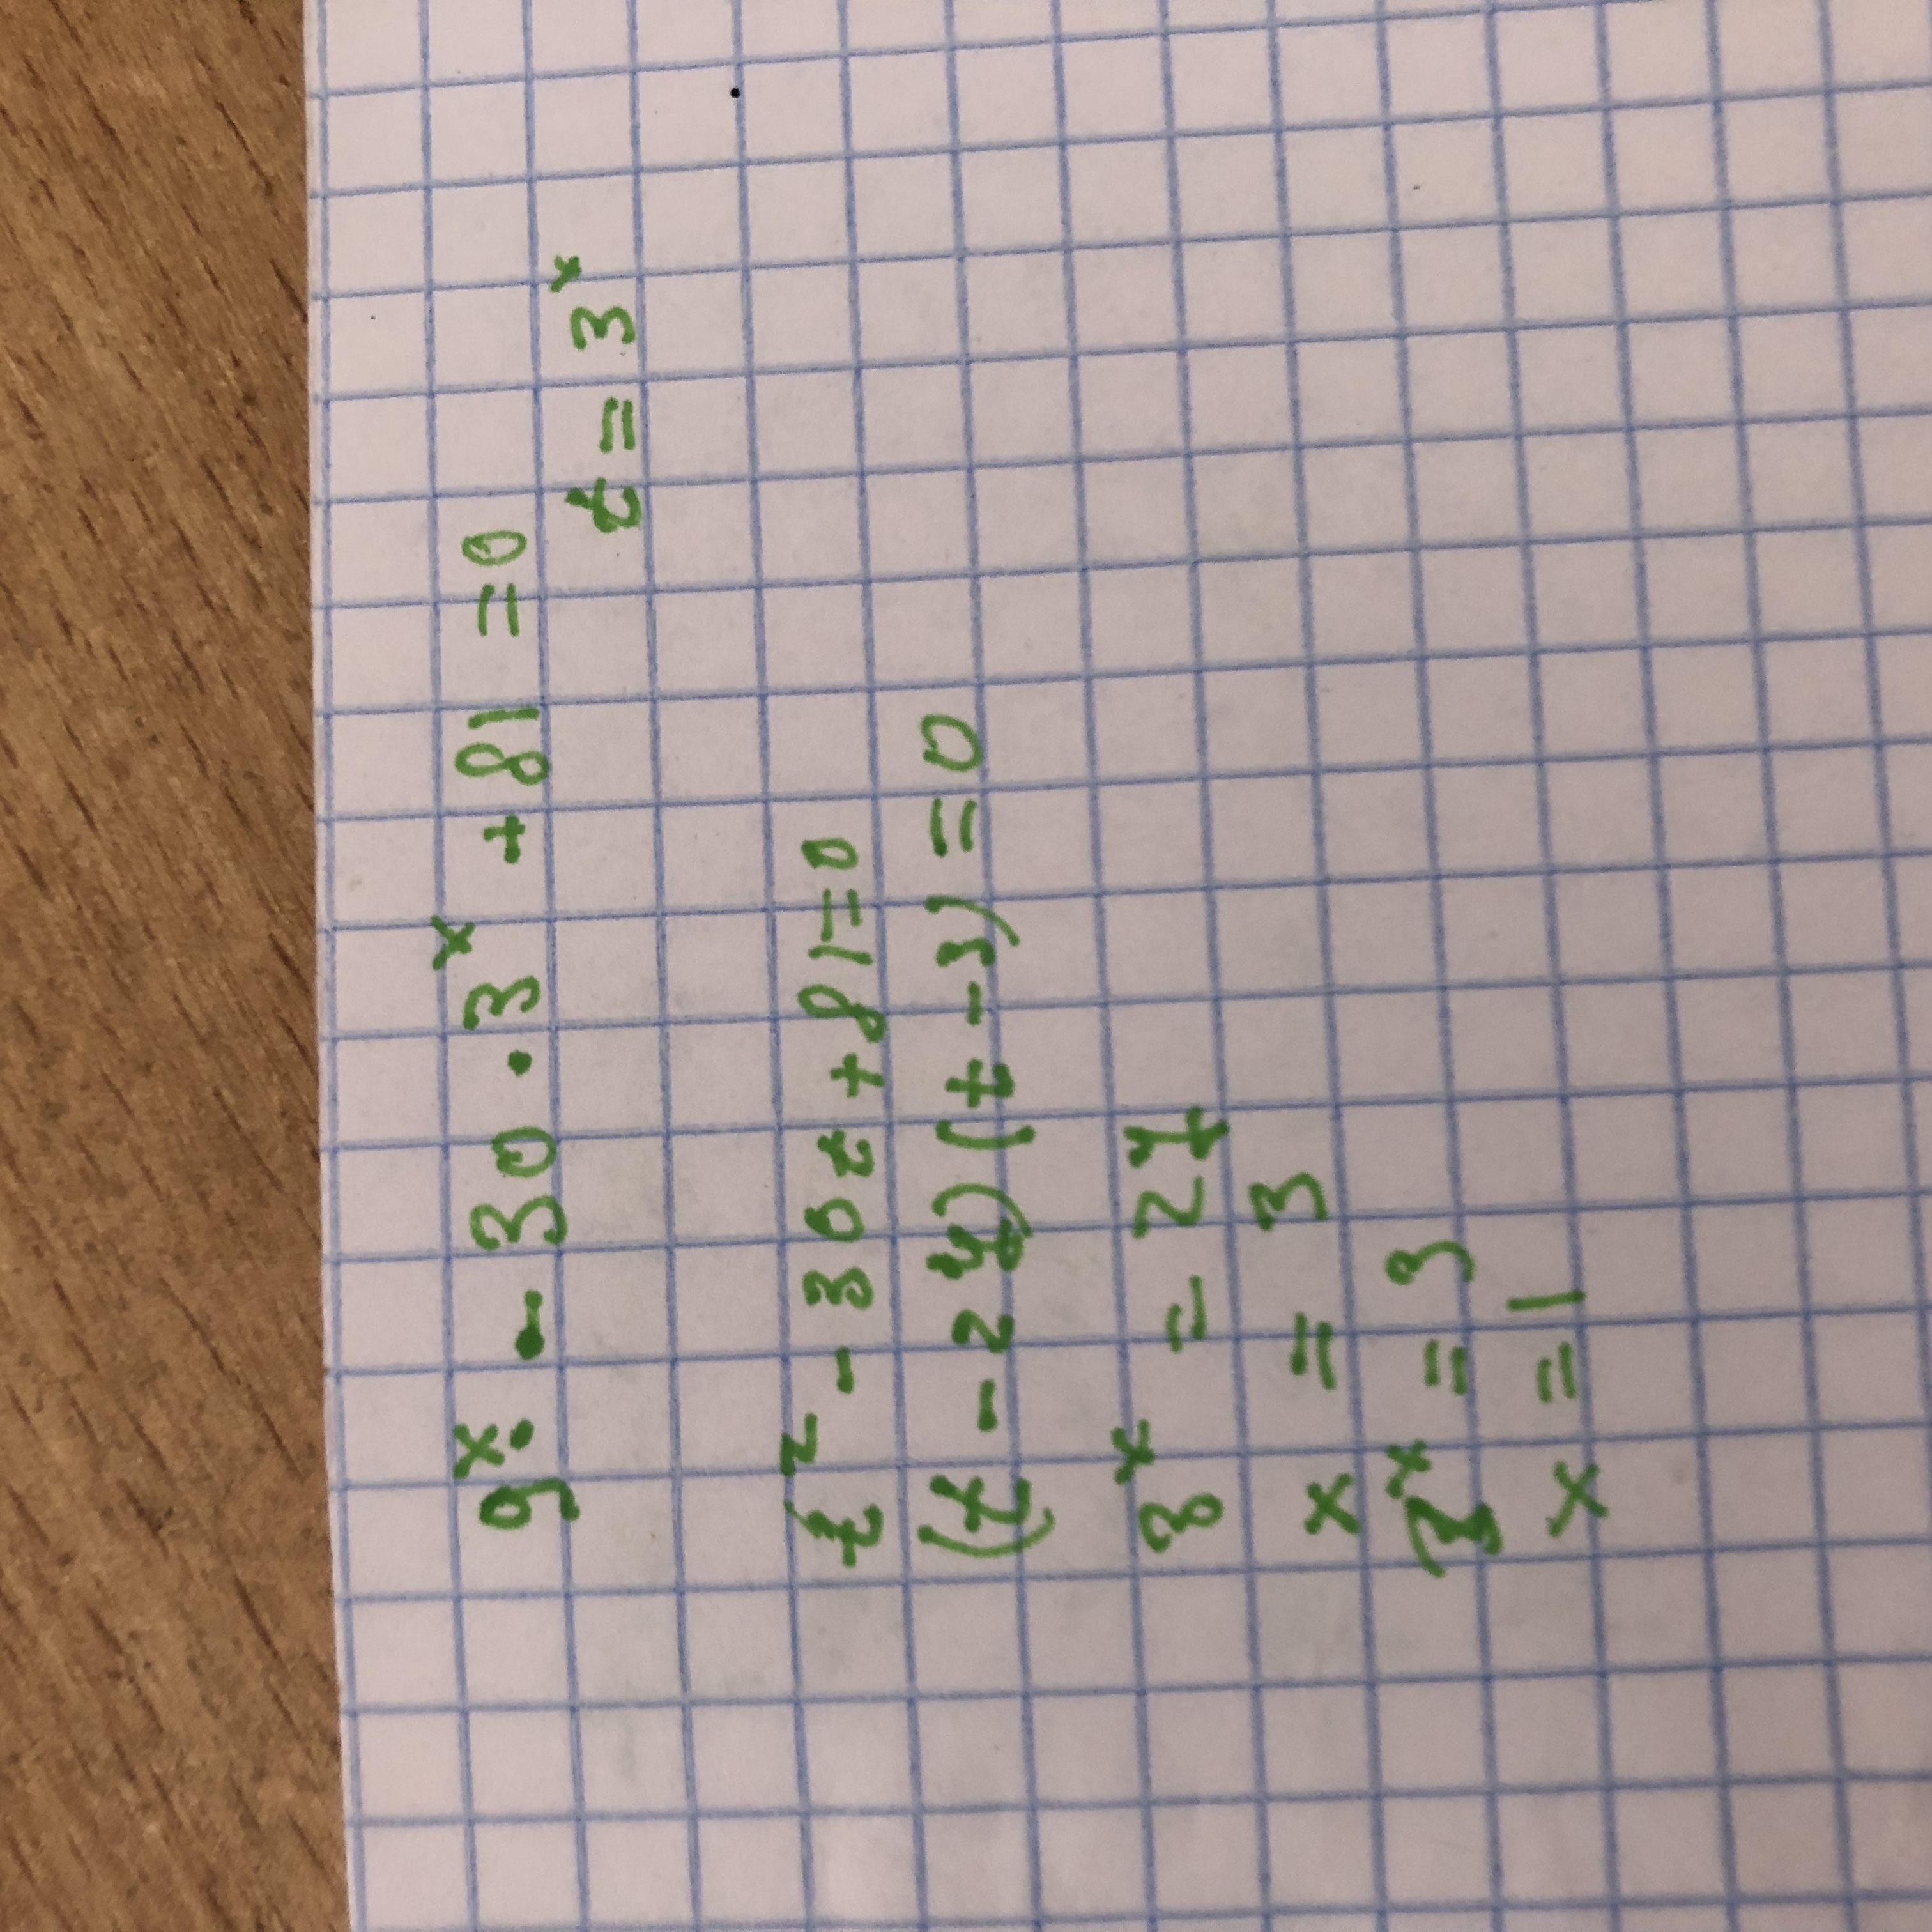 9^x - 30 · 3^x + 81 = 0
t = 3^x
t^2 - 30t + 81 = 0
(t - 27)(t - 3) = 0
3^x = 27
x = 3
3^x = 3
x = 1